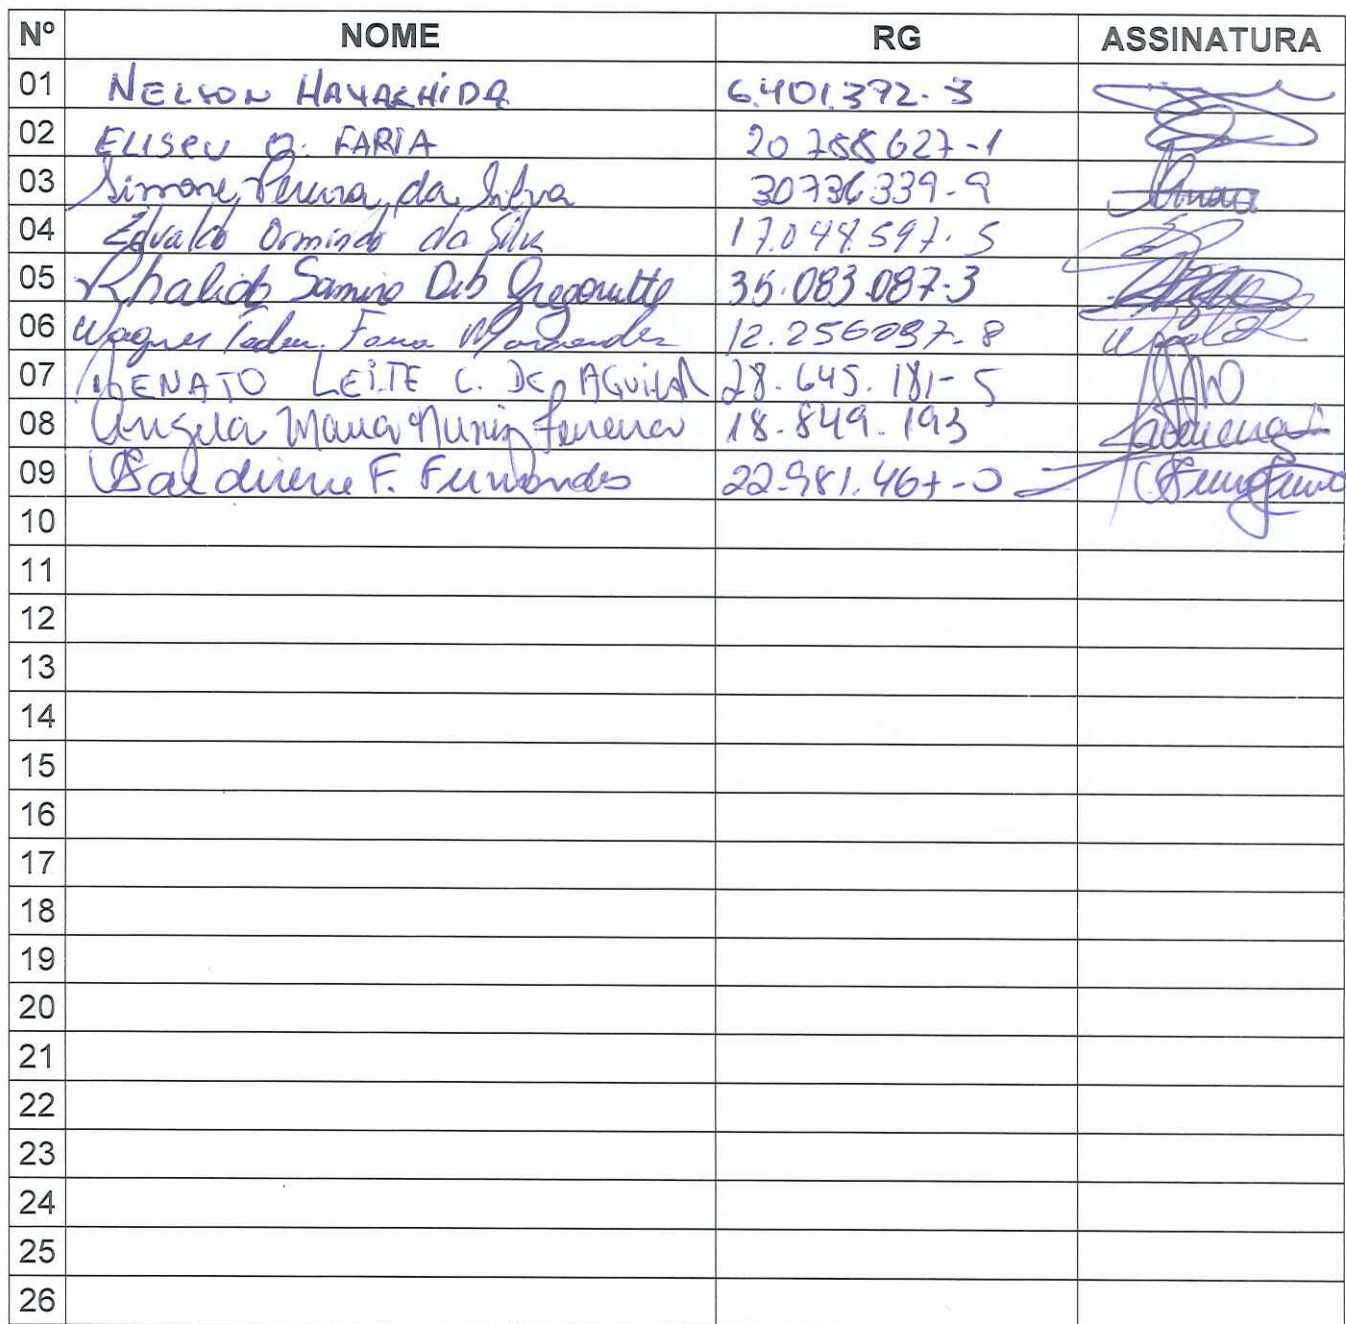 Nº NOME RG ASSINATURA
01 NELSON HAYASHIDA 6.401.372-3
02 ELISEU O. FARIA 20 758 627-1
03 Simone Pereira da Silva 30736339-9
04 Edvaldo Ormindo da Silva 17.048.597-5
05 Khalid Samira Dib Gregorutto 35.083.087-3
06 Wagner Tadeu Faria 12.256097-8
07 RENATO LEITE C. DE AGUILAR 28.645.181-5
08 Angela Maria Muniz Ferreira 18.849.193
09 F. Fernandes 22.981.467-0
10
11
12
13
14
15
16
17
18
19
20
21
22
23
24
25
26